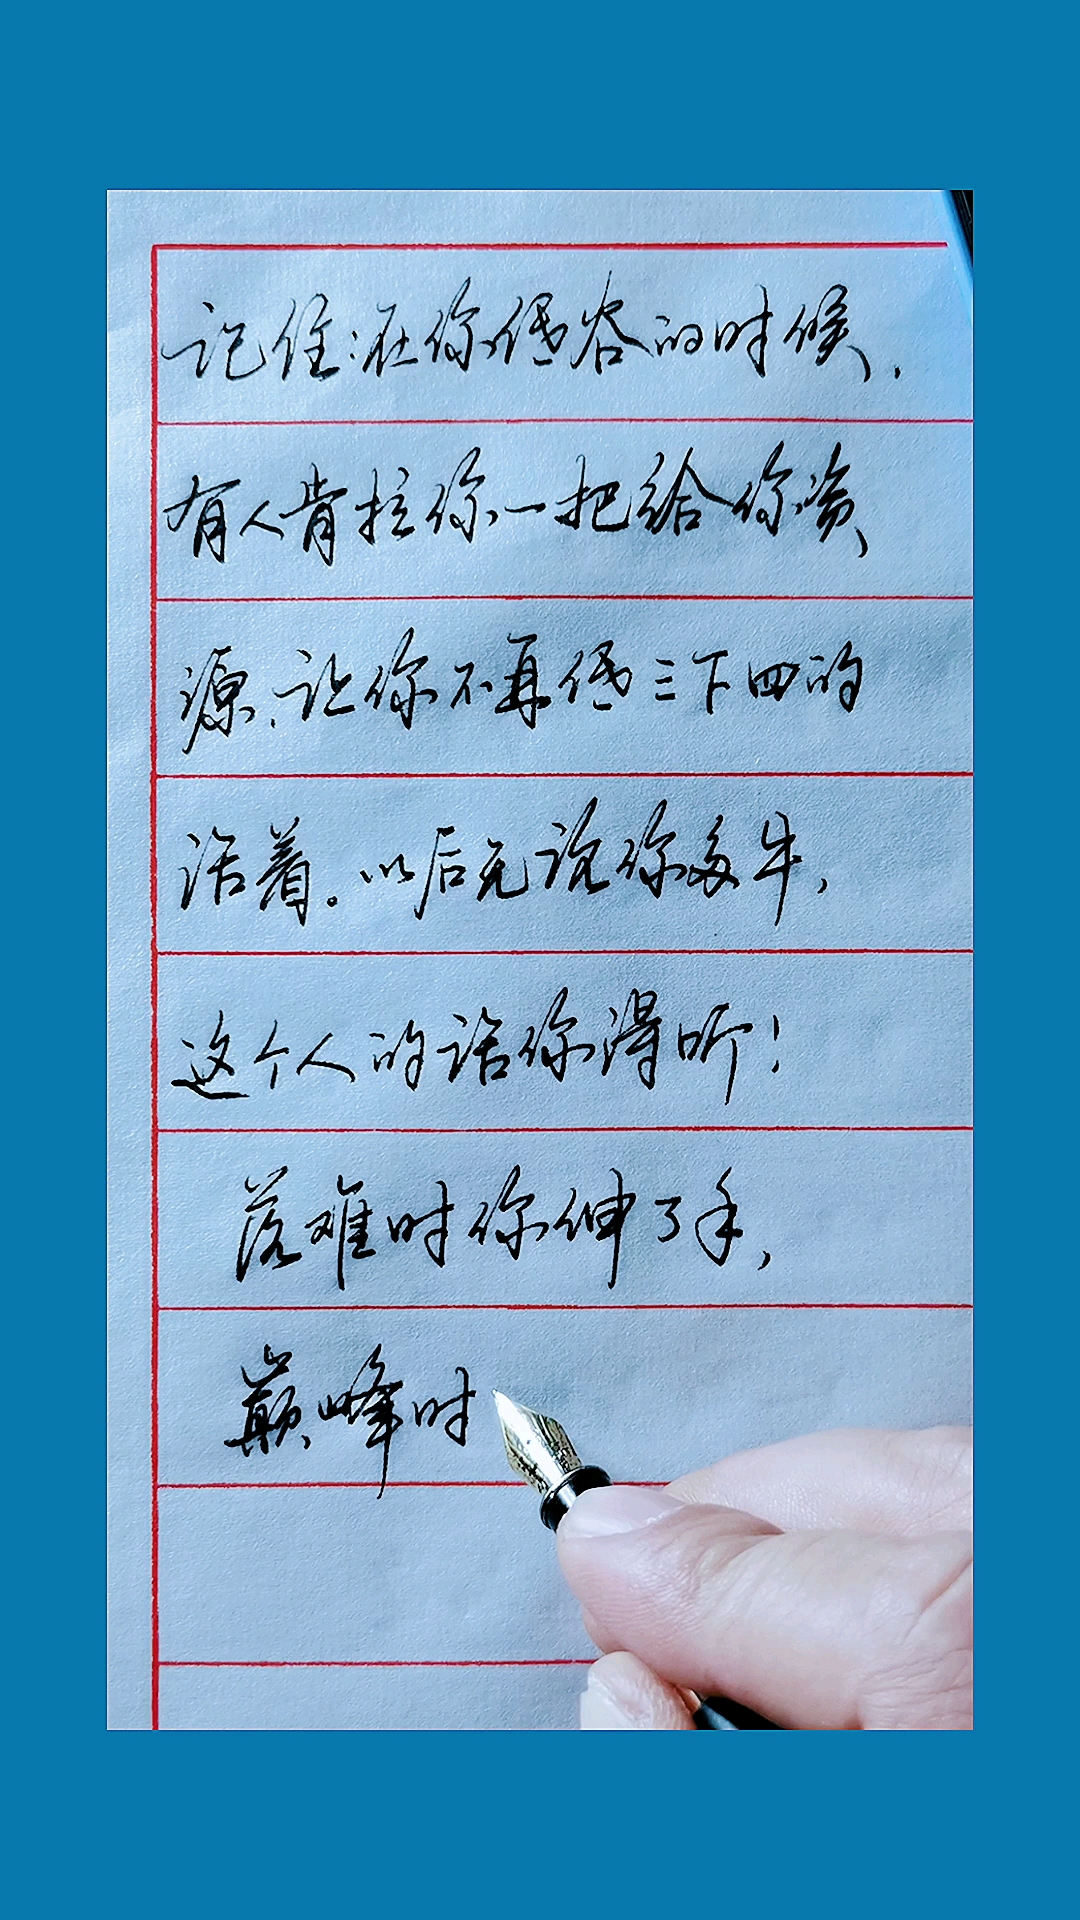 记住:在你低谷的时候,
有人肯拉你一把给你资
源,让你不再低三下四的
活着。以后无论你多牛,
这个人的话你得听!
落难时你伸了手,
巅峰时